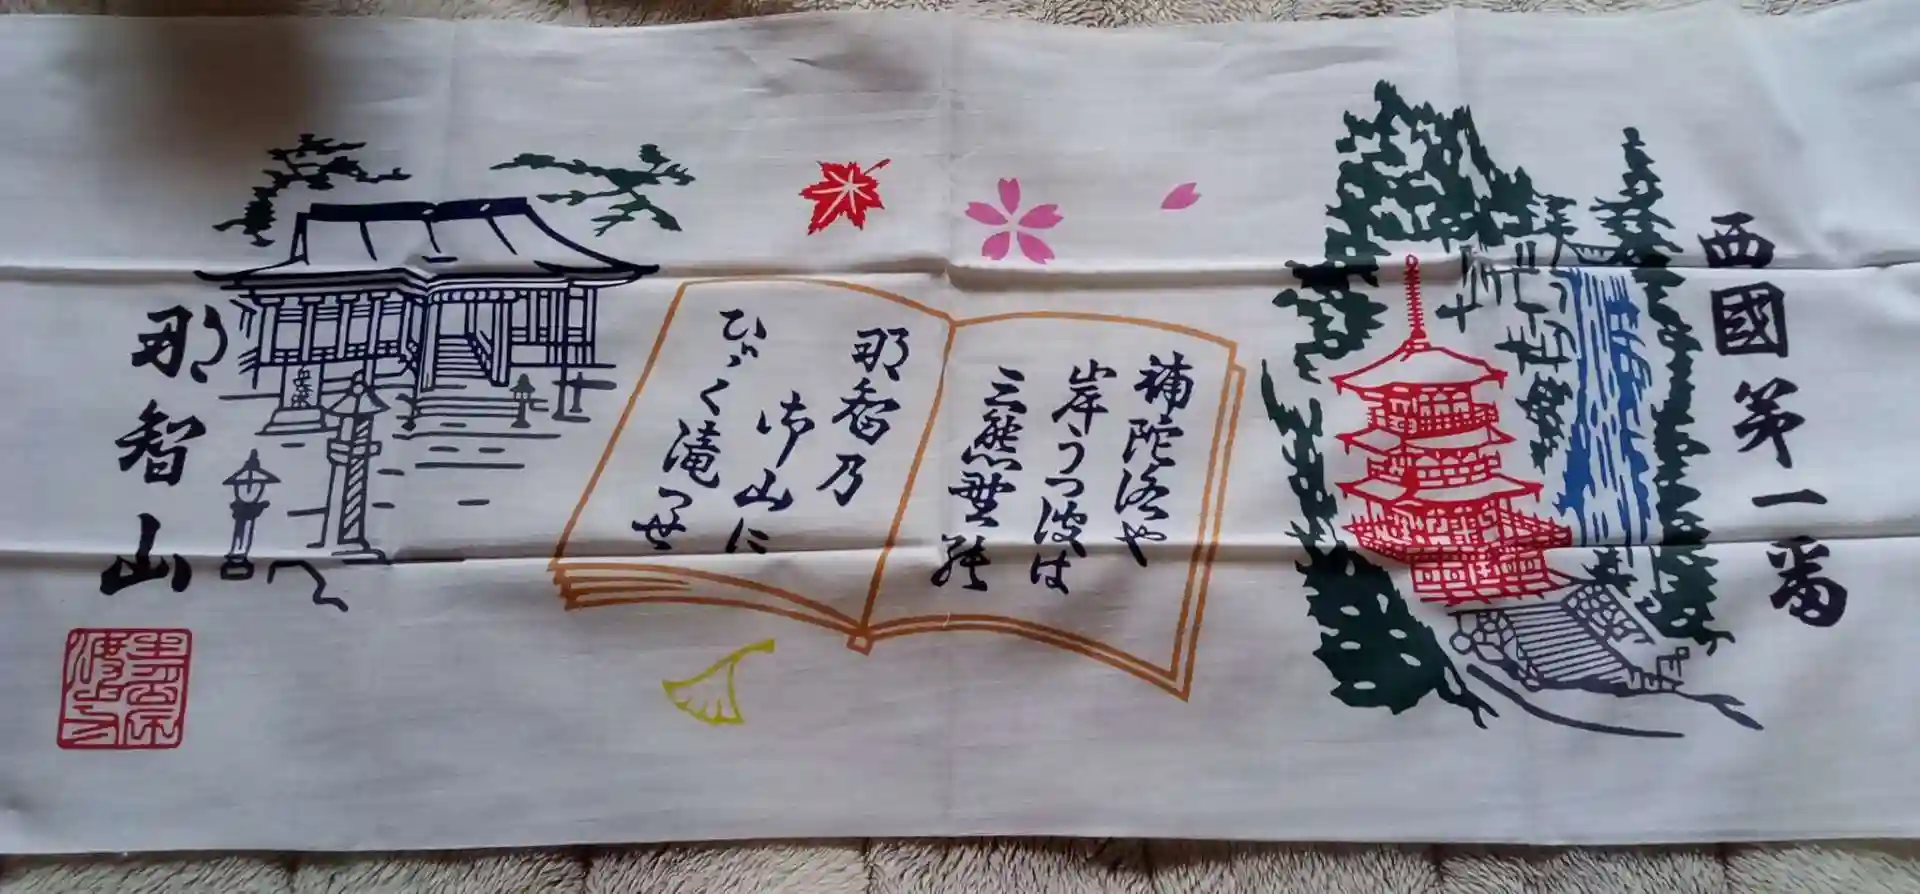 西國第一番
補陀洛や
岸うつ波は
三熊野能
那智乃
御山に
ひゞく滝つせ
那智山